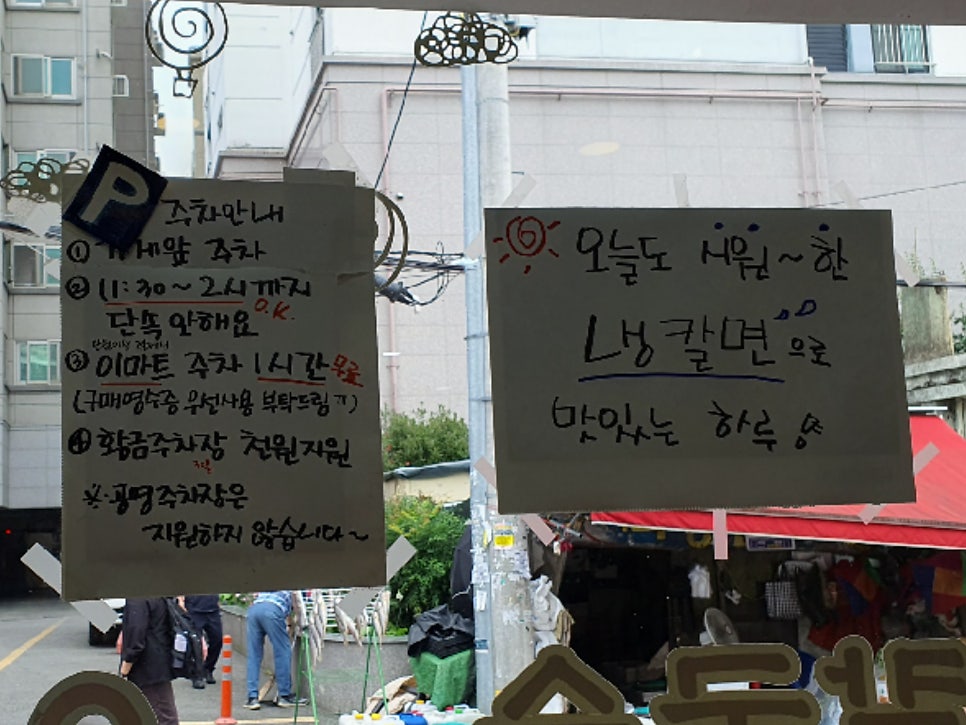 P
주차안내
① 가게앞 주차
② 11:30~2시까지
O.K.
단속안해요
③ 이마트 주차 1시간 무료
(구매영수증 우선사용 부탁드림ㅠ)
④ 황금주차장 천원지원
※ 공영주차장은
지원하지 않습니다~
오늘도 시원~한
냉칼면으로
맛있는 하루